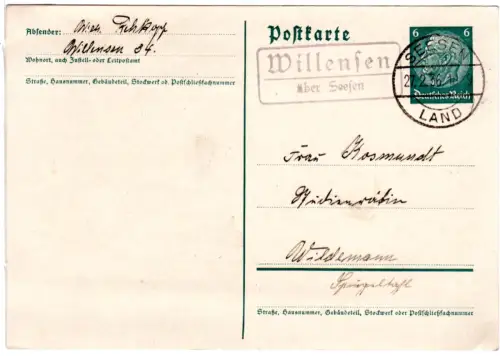 Absender:
Willensen 84.
Wohnort, auch Zustell- oder Leitpostamt
Straße, Hausnummer, Gebäudeteil, Stockwerk od. Postschließfachnummer
Postkarte
6 6
Deutsches Reich
Willensen
über Seesen
SEESEN
LAND
Frau Kosmundt
Studienrätin
Wildemann
Spiegeltahl
Straße, Hausnummer, Gebäudeteil, Stockwerk oder Postschließfachnummer